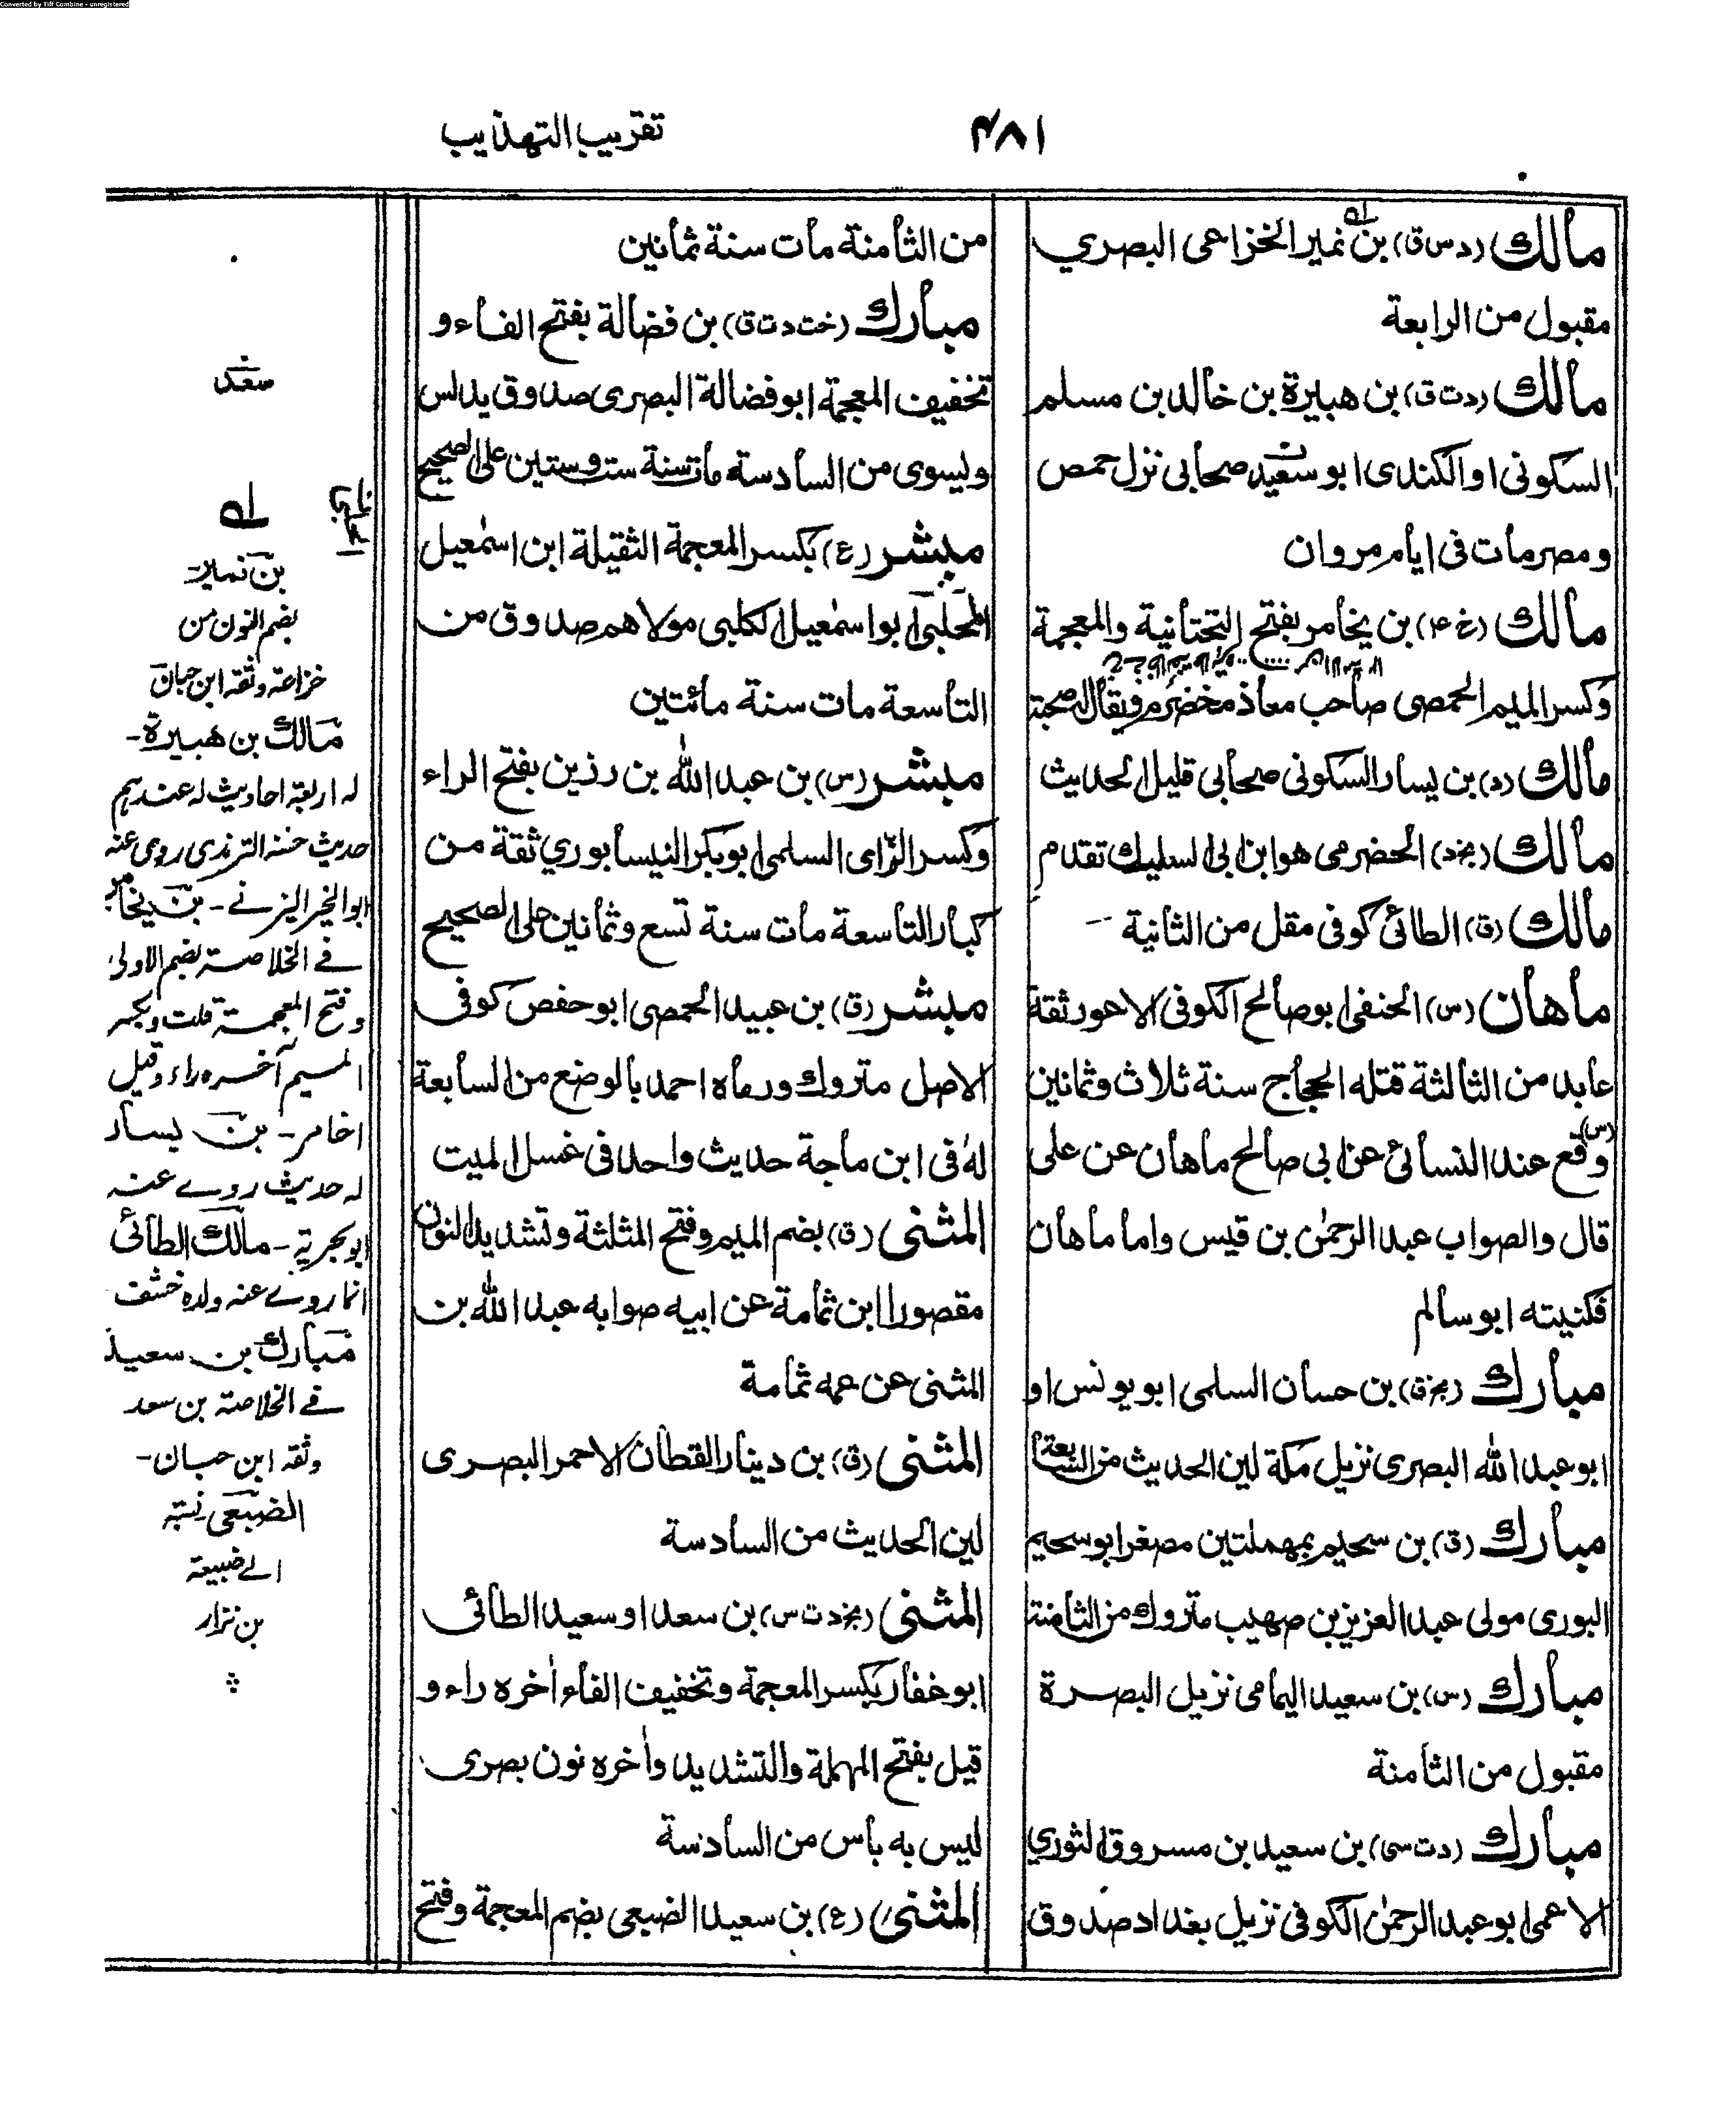 Converted by Tiff Combine - unregistered
۴۸۱
تقريب التهذيب
مالك (د س ق) بن نمير الخزاعي البصري
مقبول من الرابعة
مالك (د ت ق) بن هبيرة بن خالد بن مسلم
السكوني او الكندي ابو سعيد صحابي نزل حمص
ومصر مات في ايام مروان
مالك (خ ۴) بن يخامر بفتح التحتانية والمعجمة
وكسر الميم الحمصي صاحب معاذ مخضرم ويقال له صحبة
مالك (د) بن يسار السكوني صحابي قليل الحديث
مالك (بخ د) الحضرمي هو ابن ابي السليك تقدم
مالك (ق) الطائي كوفي مقل من الثانية
ماهان (س) الحنفي ابو صالح الكوفي الاعور ثقة
عابد من الثالثة قتله الحجاج سنة ثلاث وثمانين
(س) وقع عند النسائي عن ابي صالح ماهان عن علي
قال والصواب عبد الرحمٰن بن قيس واما ماهان
فكنيته ابو سالم
مبارك (بخ ق) بن حسان السلمي ابو يونس او
ابو عبد الله البصري نزيل مكة لين الحديث من السابعة
مبارك (ق) بن سحيم بمهملتين مصغر ابو سحيم
البوري مولى عبد العزيز بن صهيب متروك من الثامنة
مبارك (س) بن سعيد اليمامي نزيل البصرة
مقبول من الثامنة
مبارك (د ت سي) بن سعيد بن مسروق الثوري
الاعمى ابو عبد الرحمٰن الكوفي نزيل بغداد صدوق
من الثامنة مات سنة ثمانين
مبارك (خت د ت ق) بن فضالة بفتح الفاء و
تخفيف المعجمة ابو فضالة البصري صدوق يدلس
ويسوي من السادسة مات سنة ست وستين على الصحيح
مبشر (ع) بكسر المعجمة الثقيلة ابن اسمٰعيل
الحلبي ابو اسمٰعيل الكلبي مولاهم صدوق من
التاسعة مات سنة مائتين
مبشر (س) بن عبد الله بن رزين بفتح الراء
وكسر الزاي السلمي ابو بكر النيسابوري ثقة من
كبار التاسعة مات سنة تسع وثمانين على الصحيح
مبشر (ق) بن عبيد الحمصي ابو حفص كوفي
الاصل متروك ورماه احمد بالوضع من السابعة
له في ابن ماجة حديث واحد في غسل الميت
المثنى (ق) بضم الميم وفتح المثلثة وتشديد النون
مقصورا ابن ثمامة عن ابيه صوابه عبد الله بن
المثنى عن عمه ثمامة
المثنى (ق) بن دينار القطان الاحمر البصري
لين الحديث من السادسة
المثنى (بخ د ت س) بن سعد او سعيد الطائي
ابو غفار بكسر المعجمة وتخفيف الفاء اٰخره راء و
قيل بفتح المهملة والتشديد واٰخره نون بصري
ليس به بأس من السادسة
المثنى (ع) بن سعيد الضبعي بضم المعجمة وفتح
سعد
له
بن نمير
بضم النون من
خزاعة وثقه ابن حبان
مالك بن هبيرة-
له اربعة احاديث له عندهم
حديث حسنه الترمذي روى عنه
ابو الخير اليزني - بن يخامر
في الخلاصة بضم الاولى
وفتح المعجمة قلت وبكسر
الميم آخره راء وقيل
اخامر - بن يسار
له حديث روى عنه
ابو بحرية - مالك الطائي
انما روى عنه ولده خشف
مبارك بن سعيد
في الخلاصة بن سعد
وثقه ابن حبان-
الضبعي نسبة
الى ضبيعة
بن نزار